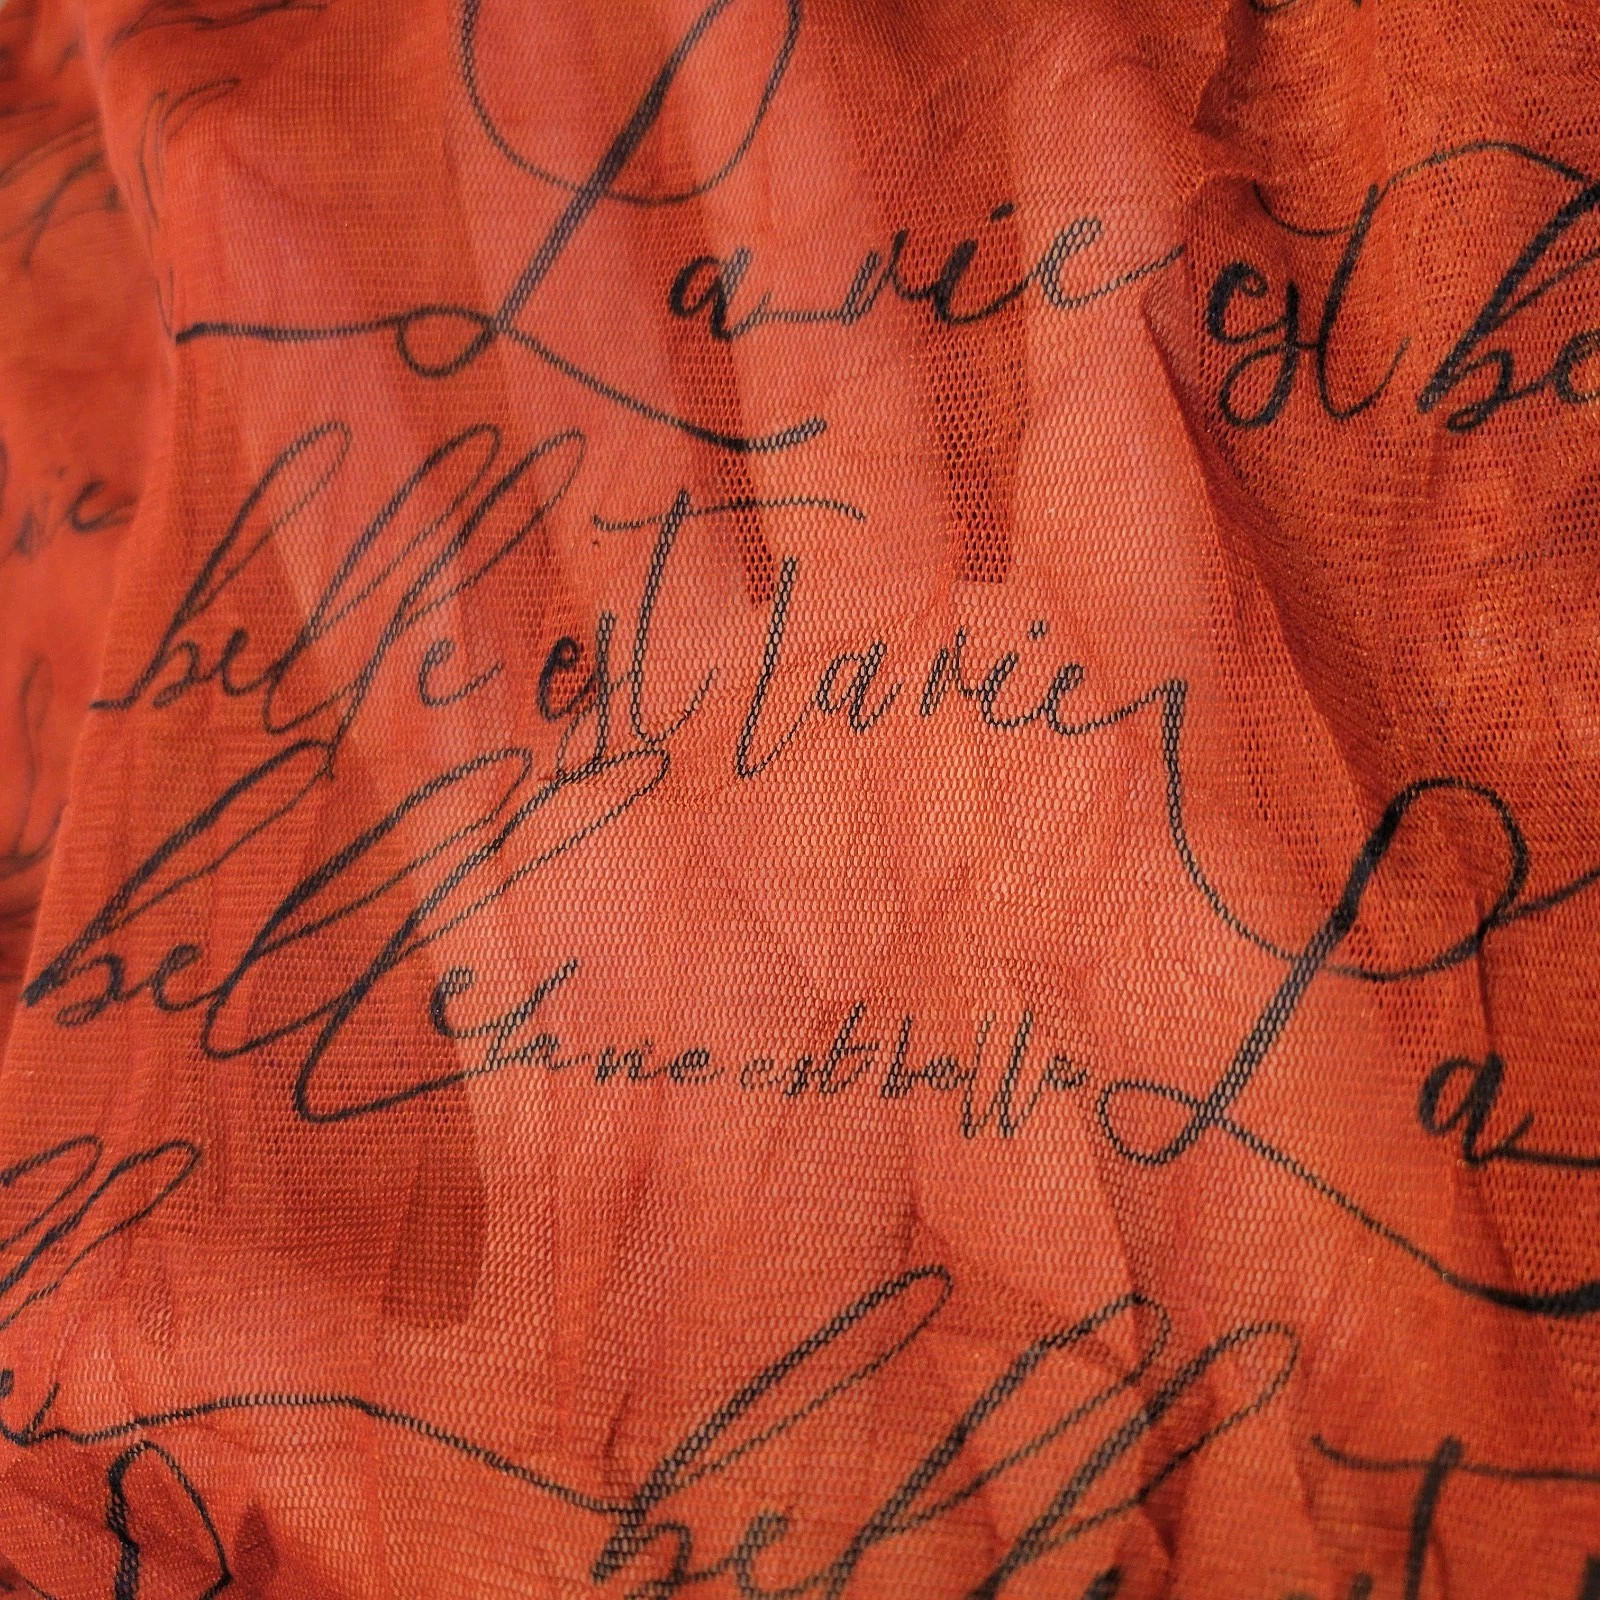 La vie est be
vie
belle est la vie
belle
la vie est belle
La
belle